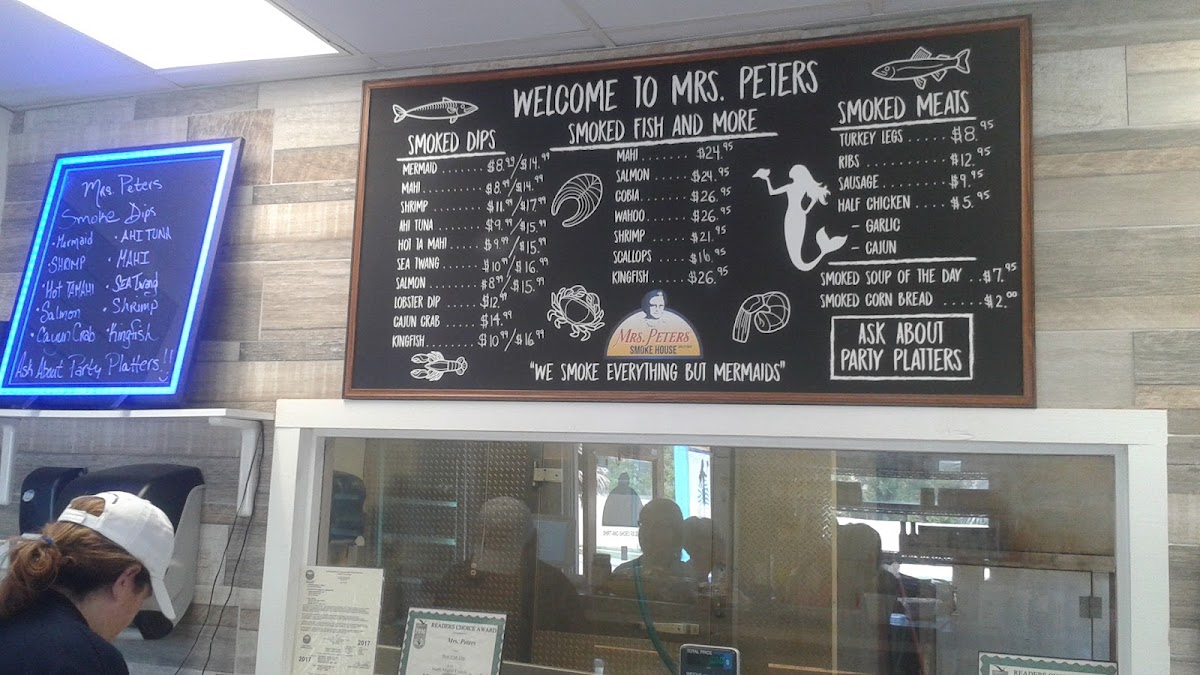 Mrs. Peters
Smoke Dips
• Mermaid
• SHRIMP
• Hot TAMAHI
• Salmon
• Cajun Crab
• AHI TUNA
• MAHI
• SEA Twang
• SHrimp
• Kingfish
Ask About Party Platters!!
WELCOME TO MRS. PETERS
SMOKED DIPS
MERMAID ........ $8.99/$14.99
MAHI ........... $8.99/$14.99
SHRIMP ......... $11.99/$17.99
AHI TUNA ....... $9.99/$15.99
HOT TA MAHI .... $9.99/$15.99
SEA TWANG ...... $10.99/$16.99
SALMON ......... $8.99/$15.99
LOBSTER DIP .... $12.99
CAJUN CRAB ..... $14.99
KINGFISH ....... $10.99/$16.99
SMOKED FISH AND MORE
MAHI ....... $24.95
SALMON ..... $24.95
COBIA ...... $26.95
WAHOO ...... $26.95
SHRIMP ..... $21.95
SCALLOPS ... $16.95
KINGFISH ... $26.95
MRS. PETERS'
SMOKE HOUSE
"WE SMOKE EVERYTHING BUT MERMAIDS"
SMOKED MEATS
TURKEY LEGS ..... $8.95
RIBS ............ $12.95
SAUSAGE ......... $9.95
HALF CHICKEN .... $5.95
- GARLIC
- CAJUN
SMOKED SOUP OF THE DAY ... $7.95
SMOKED CORN BREAD ..... $2.00
ASK ABOUT
PARTY PLATTERS
2017
2017
READERS CHOICE AWARD
Mrs. Peters
TOTAL PRICE
READERS